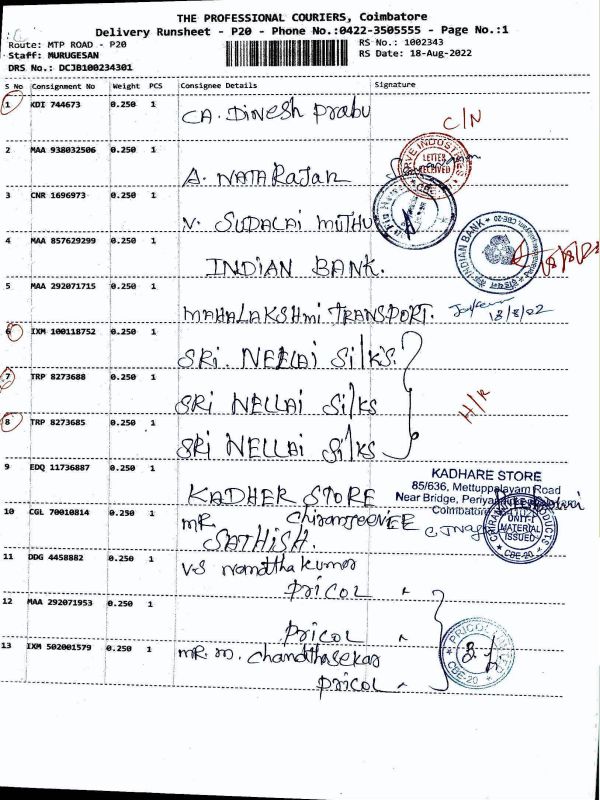 THE PROFESSIONAL COURIERS, Coimbatore
Delivery Runsheet - P20 - Phone No.:0422-3505555 - Page No.:1
Route: MTP ROAD - P20
RS No.: 1002343
Staff: MURUGESAN
RS Date: 18-Aug-2022
DRS No.: DCJB100234301
S No Consignment No Weight PCS Consignee Details Signature
1 KDI 744673 0.250 1 CA. Dinesh Prabu
C/N
2 MAA 938032506 0.250 1 A. NATARajan
LETTER RECEIVED
3 CNR 1696973 0.250 1 N. SUDALAI MUTHU
4 MAA 857629299 0.250 1 INDIAN BANK.
INDIAN BANK
5 MAA 292071715 0.250 1 MAHALAKSHMI TRANSPORT.
18/8/22
6 IXM 100118752 0.250 1 SRI. NELLAI SilKS.
7 TRP 8273688 0.250 1 SRI NELLAI SilKS
H/K
8 TRP 8273685 0.250 1 SRI NELLAI SilKS
9 EDQ 11736887 0.250 1 KADHER STORE
KADHARE STORE
85/636, Mettuppalayam Road
Near Bridge,
Coimbatore
10 CGL 70010814 0.250 1 MR. SATHISH.
UNIT-I
MATERIAL
ISSUED
CBE-20
11 DDG 4458882 0.250 1 V.S Nanditha kumar
PRICOL "
12 MAA 292071953 0.250 1 PRICOL "
13 IXM 502001579 0.250 1 MR. M. Chandthasekar
PRICOL "
PRICOL LIMITED
CBE-20